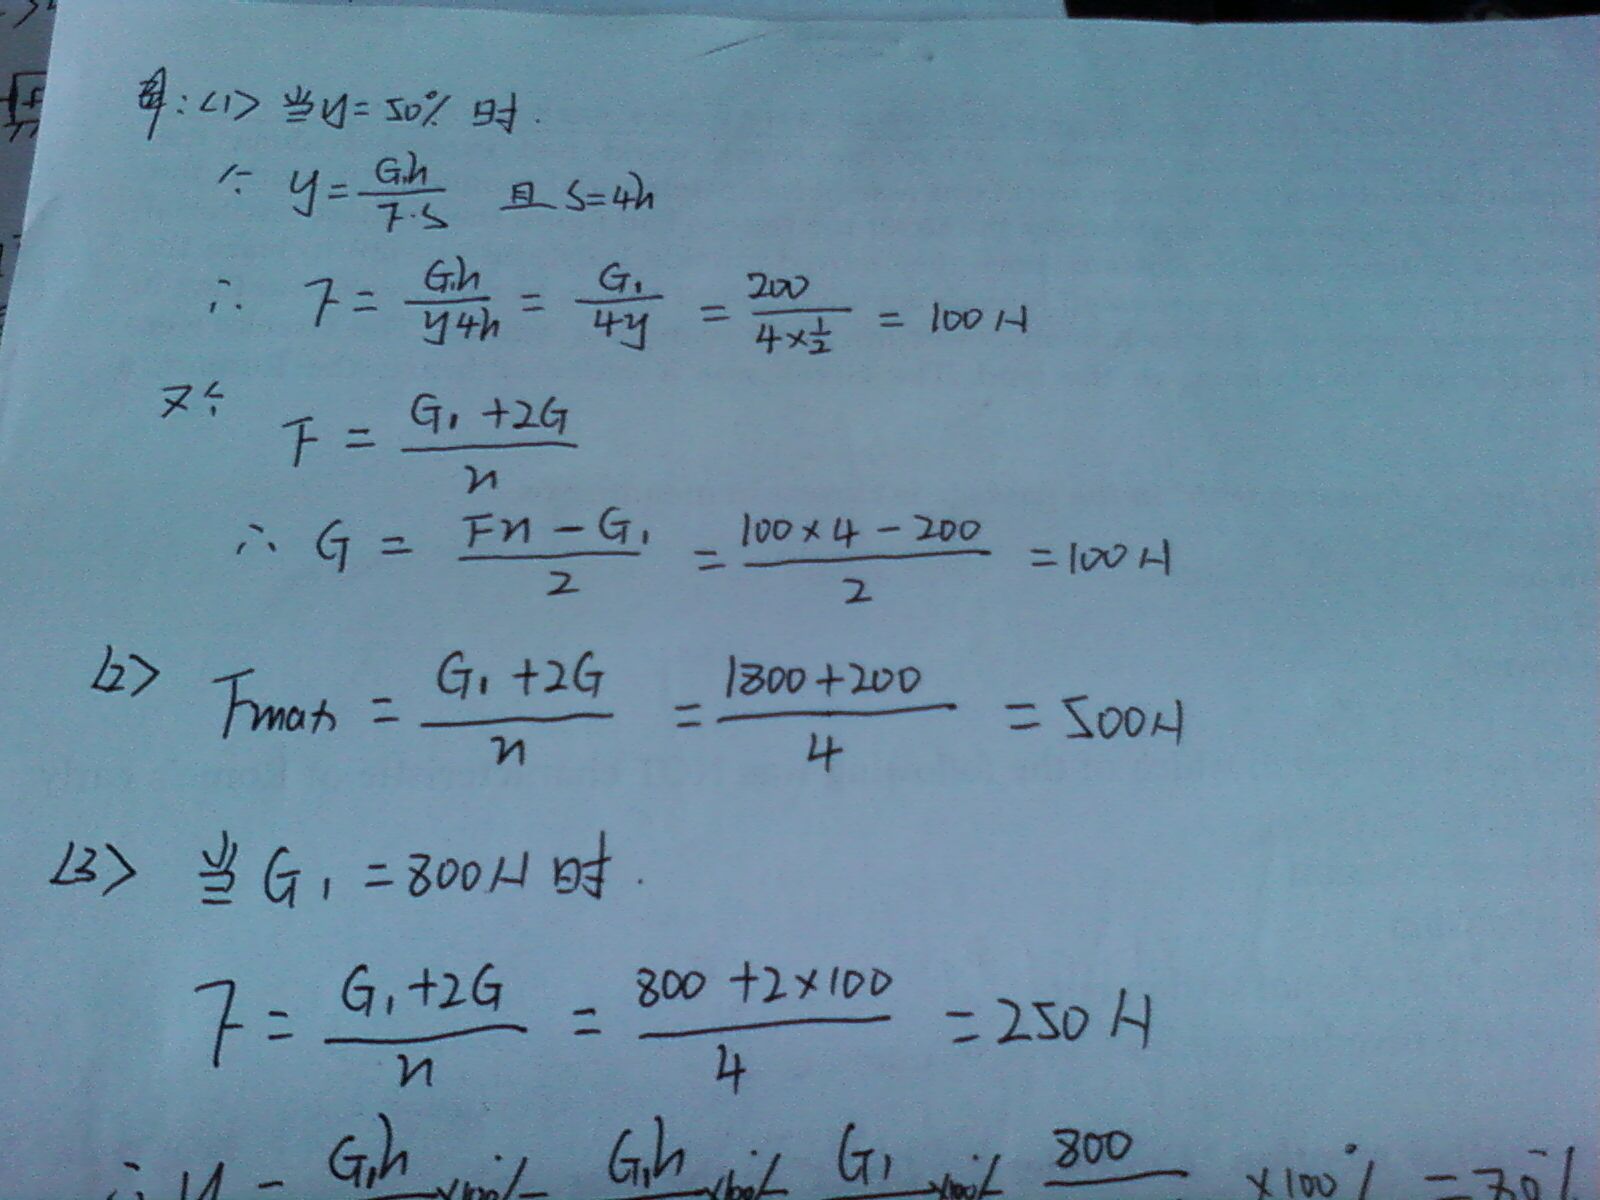 解:<1> 当y=50% 时.
∵ y = G₁h / F·S 且 S=4h
∴ F = G₁h / y4h = G₁ / 4y = 200 / 4×1/2 = 100N
又∵
F = G₁+2G / n
∴ G = Fn-G₁ / 2 = 100×4-200 / 2 = 100N
<2> Fmax = G₁+2G / n = 1800+200 / 4 = 500N
<3> 当G₁=800N 时.
F = G₁+2G / n = 800+2×100 / 4 = 250N
∴ y = G₁h ×100% = G₁h ×100% G₁ ×100% 800 ×100%